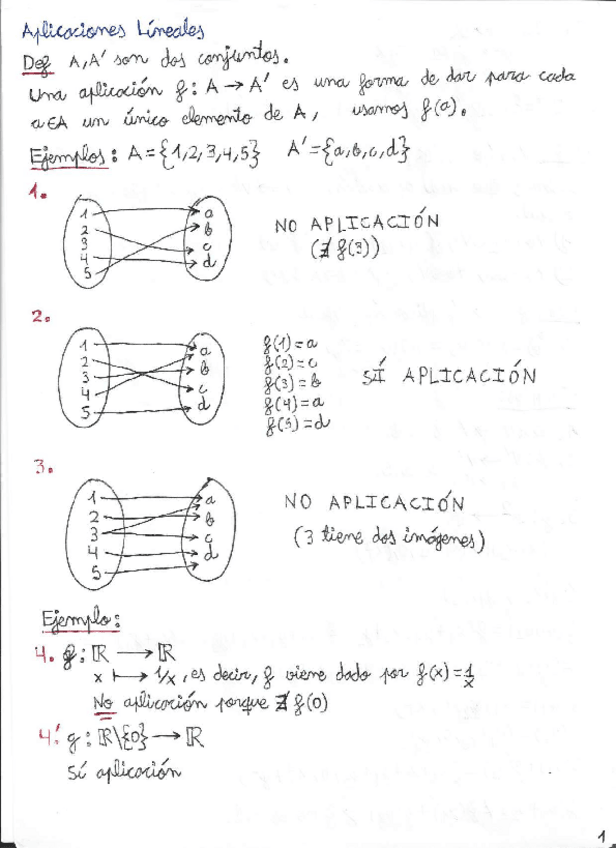 Aplicaciones Líneales
Def A, A' son dos conjuntos.
Una aplicación f: A → A' es una forma de dar para cada
a∈A un único elemento de A, usamos f(a).
Ejemplos: A={1,2,3,4,5} A'={a,b,c,d}
1.
1 a
2 b
3 c
4 d
5
NO APLICACIÓN
(∄ f(3))
2.
1 a
2 b
3 c
4 d
5
f(1)=a
f(2)=c
f(3)=b
f(4)=a
f(5)=d
SÍ APLICACIÓN
3.
1 a
2 b
3 c
4 d
5
NO APLICACIÓN
(3 tiene dos imágenes)
Ejemplo:
4. f: ℝ → ℝ
x ↦ 1/x, es decir, f viene dado por f(x)=1/x
No aplicación porque ∄ f(0)
4'. g: ℝ\{0} → ℝ
Sí aplicación
1